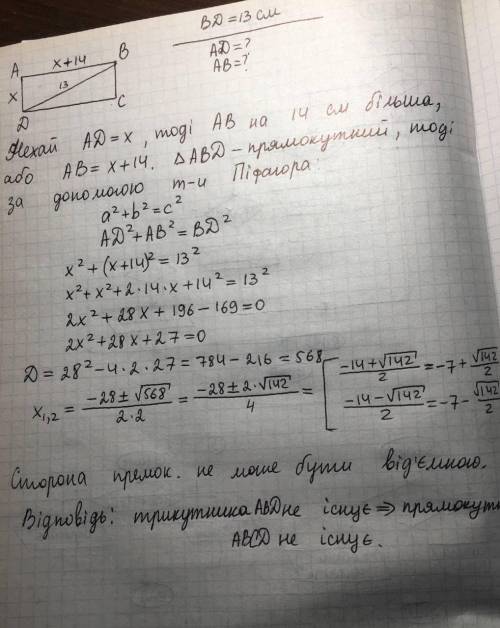 BD = 13 см
AD = ?
AB = ?
A x+14 B
x 13
D C
Нехай AD = x, тоді AB на 14 см більша,
або AB = x+14. ΔABD – прямокутний, тоді
за допомогою т-и Піфагора:
a² + b² = c²
AD² + AB² = BD²
x² + (x+14)² = 13²
x² + x² + 2·14·x + 14² = 13²
2x² + 28x + 196 – 169 = 0
2x² + 28x + 27 = 0
D = 28² – 4·2·27 = 784 – 216 = 568
x₁,₂ = (-28 ± √568)/(2·2) = (-28 ± 2·√142)/4 = [ (-14+√142)/2 = -7 + √142/2
(-14-√142)/2 = -7 - √142/2
Сторона премок. не може бути від'ємною.
Відповідь: трикутника ABD не існує ⇒ прямокутн
ABCD не існує.